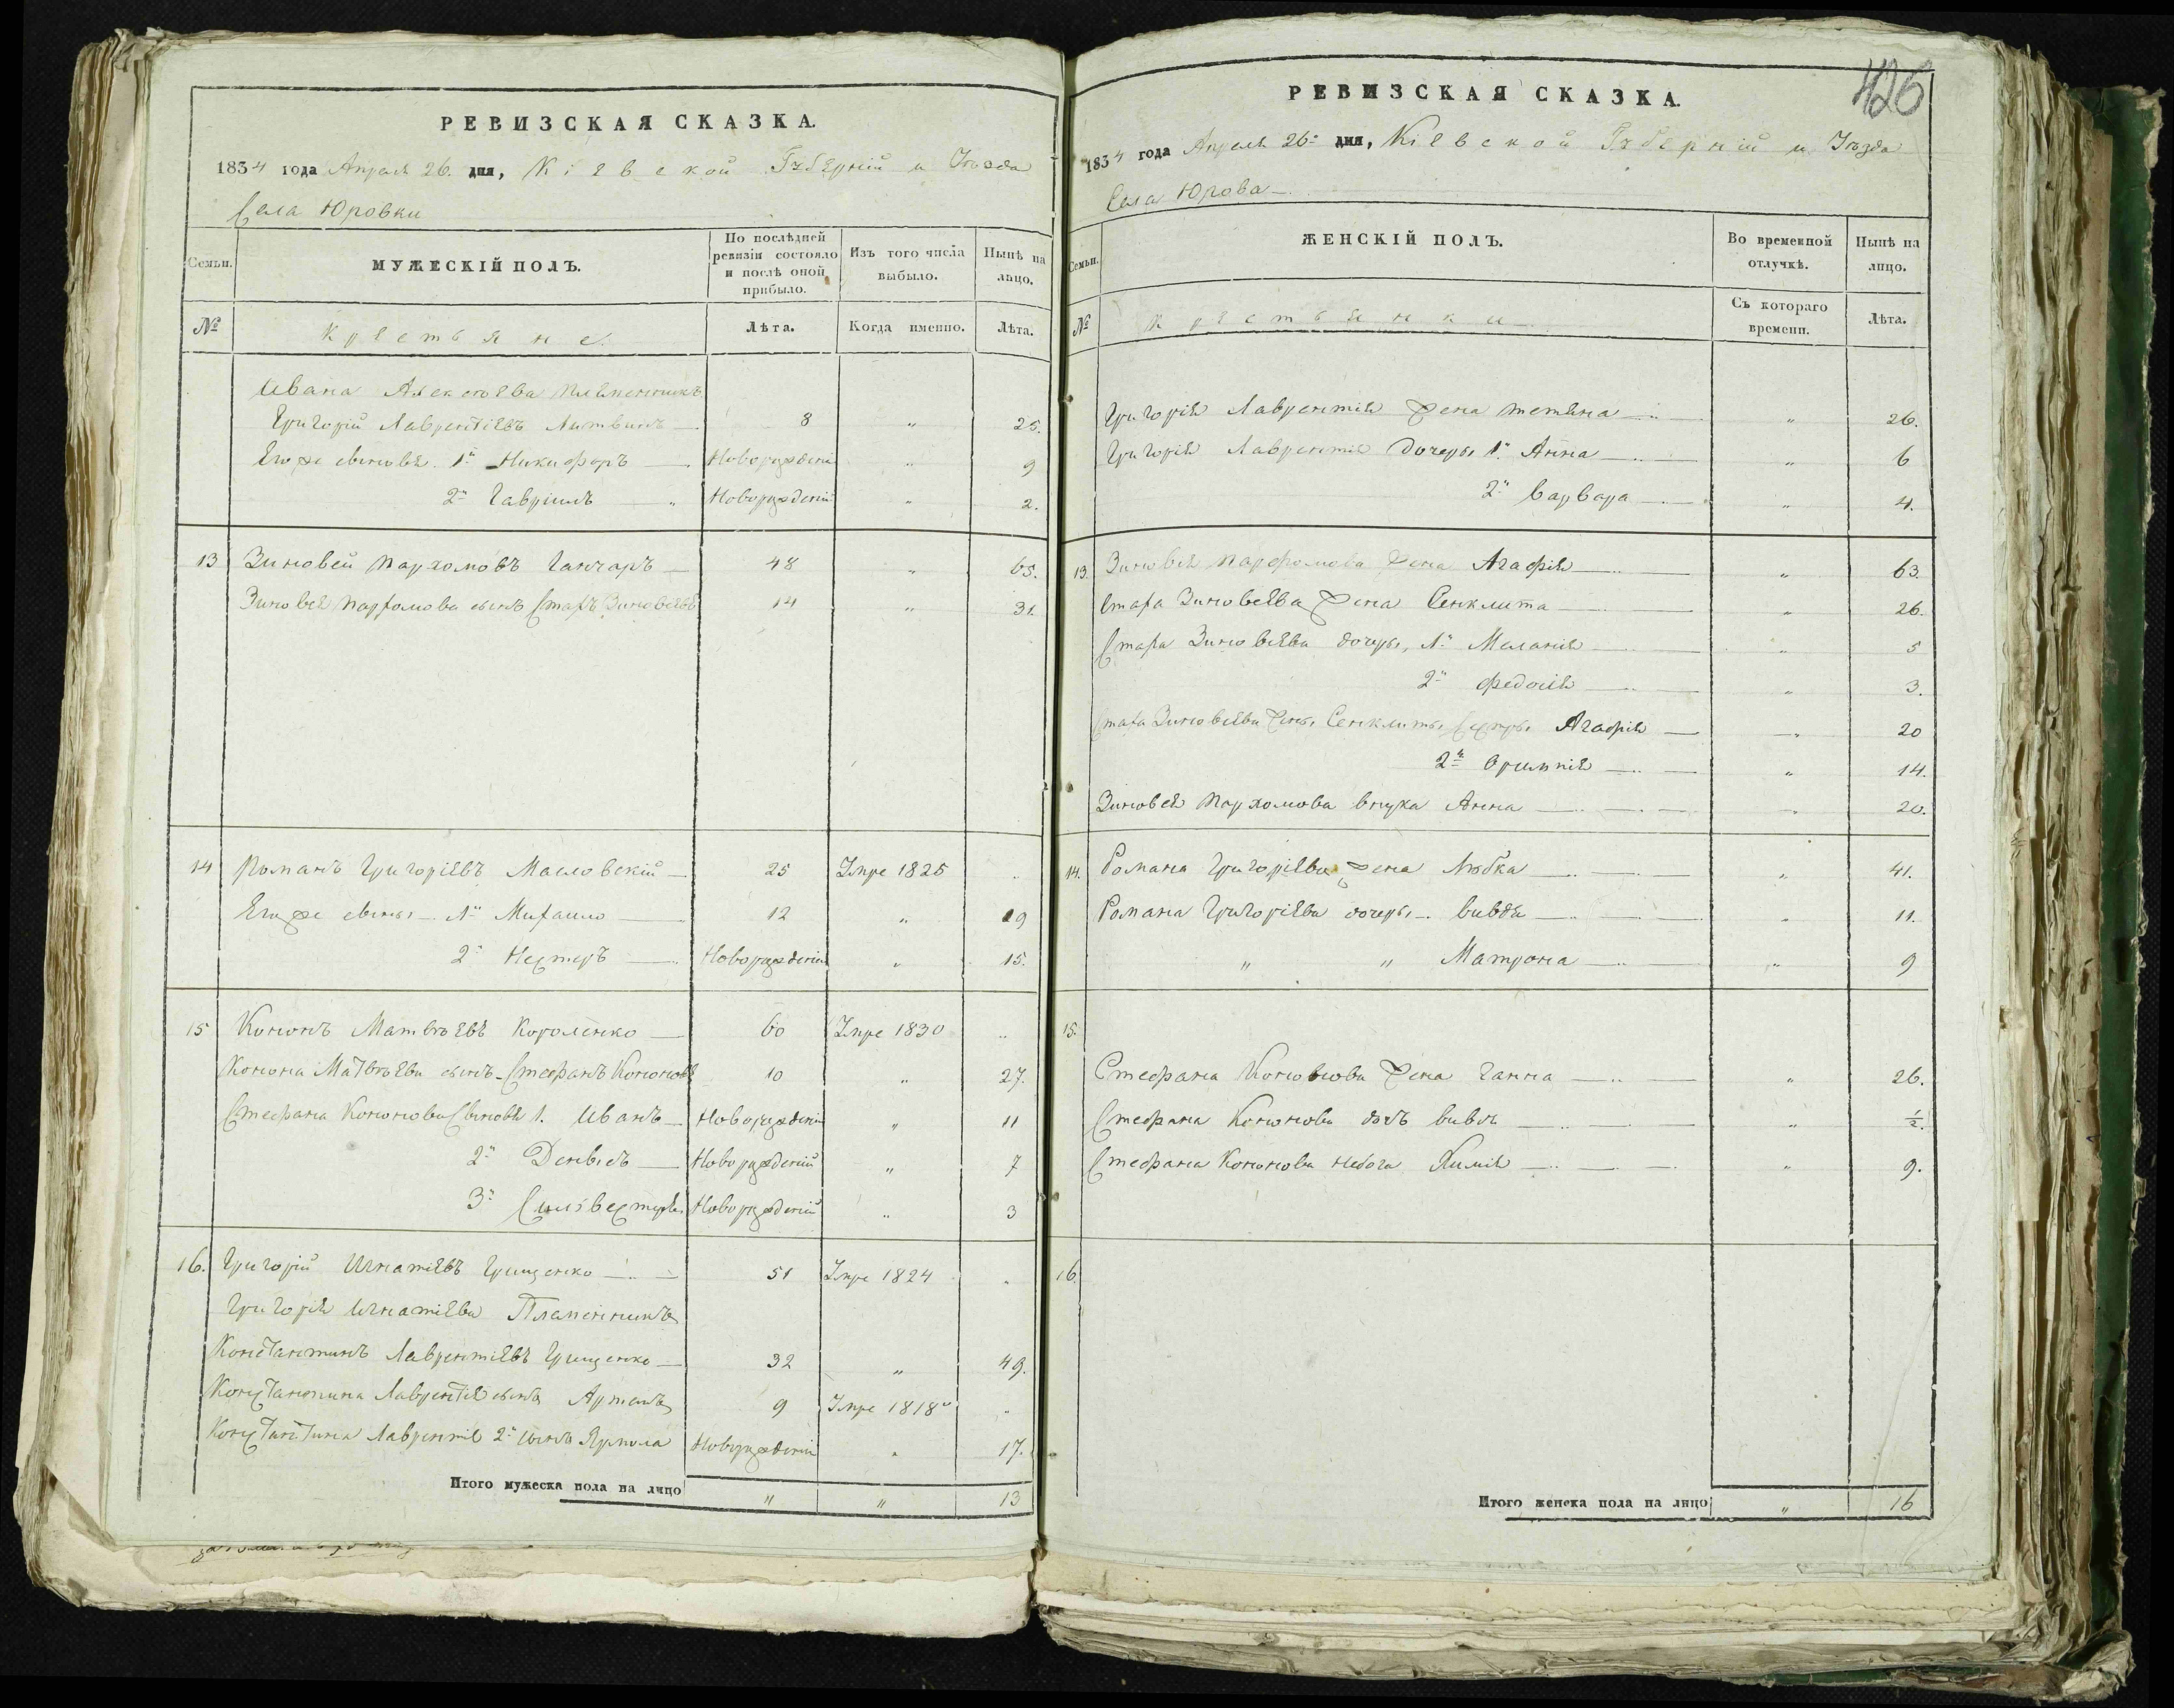 РЕВИЗСКАЯ СКАЗКА.
1834 года Апреля 26. дня, Кіевской Губерній и Уѣзда
Села Юровки
Семьи.
МУЖЕСКІЙ ПОЛЪ.
По послѣдней ревизіи состояло и послѣ оной прибыло.
Изъ того числа выбыло.
Нынѣ на лицо.
№
Крестьяне.
Лѣта.
Когда именно.
Лѣта.
Ивана Алексѣева племенникъ
Григорій Лаврентіевъ Литвинъ 8 „ 25.
Его же сыновья 1й Никифоръ Новорожденій „ 9
2й Гавріилъ Новорожденій „ 2.
13 Зиновей Пархомовъ Ганчаръ 48 „ 65.
Зиновея Пархомова сынъ Стахъ Зиновьевъ 14 „ 31.
14 Романъ Григоріевъ Масловскій 25 Умре 1825 „
Его же сыны 1й Михаило 12 „ 29
2й Нестеръ Новорожденій „ 15.
15 Кононъ Матвѣевъ Короленко 60 Умре 1830 „
Конона Матвѣева сынъ Стефанъ Кононовъ 10 „ 27.
Стефана Кононова Сыновья 1. Иванъ Новорожденій „ 11
2й Новорожденій „ 7
3й Сильвестръ Новорожденій „ 3
16. Григорій Игнатіевъ Грищенко 51 Умре 1824 „
Григорія Игнатіева Племенникъ
Константинъ Лаврентіевъ Грищенко 32 „ 49.
Константина Лаврентія сынъ Артемъ 9 Умре 1818 „
Константина Лаврентія 2й сынъ Ярмола Новорожденій „ 17.
Итого мужеска пола на лицо „ „ 13
426
РЕВИЗСКАЯ СКАЗКА.
1834 года Апреля 26 дня, Кіевской Губерній и Уѣзда
Села Юрова
Семьи.
ЖЕНСКІЙ ПОЛЪ.
Во временной отлучкѣ.
Нынѣ на лицо.
№
Крестьянки
Съ котораго времени.
Лѣта.
Григорія Лаврентія Жена Тетяна „ 26.
Григорія Лаврентія дочеры 1. Анна „ 6
2я Варвара „ 4.
13. Зиновея Пархомова Жена Агафія „ 63.
Стаха Зиновьева Жена Сенклита „ 26.
Стаха Зиновьева дочеры, 1я Меланія „ 5
2я Федосія „ 3.
Стаха Зиновьева Жены Сенклиты Сестры Агафія „ 20
2я „ 14.
Зиновея Пархомова внука Анна „ 20.
14. Романа Григоріева Жена Любка „ 41.
Романа Григоріева дочеры Вивдя „ 11.
„ „ Матрона „ 9
15.
Стефана Кононова Жена Ганна „ 26.
Стефана Кононова дочъ „ ½.
Стефана Кононова небога Химія „ 9.
16.
Итого женска пола на лицо „ 16